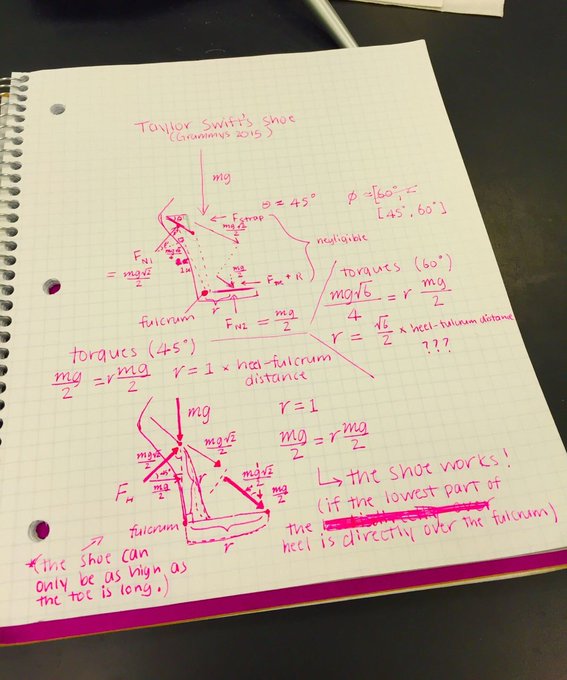 Taylor Swift's Shoe
(Grammys 2015)
mg
θ = 45°
φ = [60°,
[45°, 60°]
F strap
mg√2/2
negligible
F N1
= mg√2/2
mg/2
fulcrum
r
F N2 = mg/2
torques (60°)
mg√6/4 = r mg/2
r = √6/2 × heel-fulcrum distance
???
torques (45°)
mg/2 = r mg/2
r = 1 × heel-fulcrum
distance
mg
mg√2/2
mg√2/2
mg/2
45°
mg√2/2
mg/2
r
fulcrum
r
r = 1
mg/2 = r mg/2
↳ the shoe works!
(if the lowest part of
the
heel is directly over the fulcrum)
*(the shoe can
only be as high as
the toe is long.)